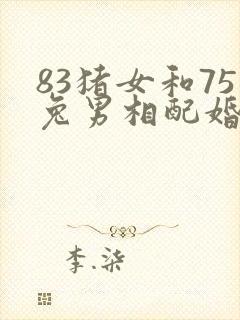 83猪女和75
兔男相配婚
李.柒